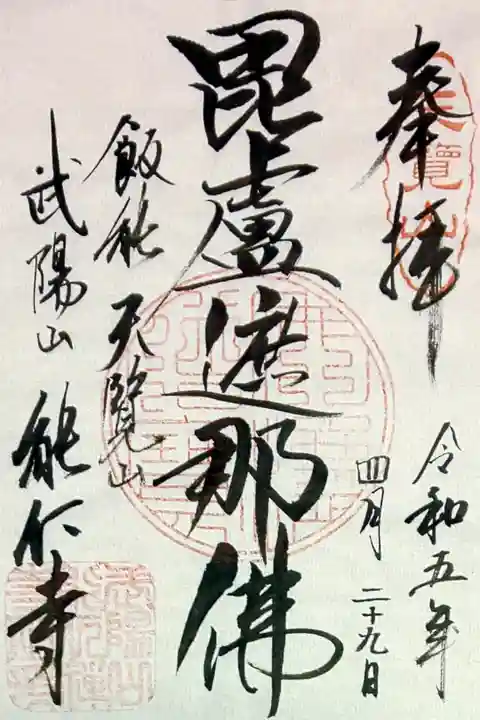 奉拝
天覽山
令和五年
四月二十九日
毘盧遮那佛
飯能 天覽山
武陽山 能仁寺